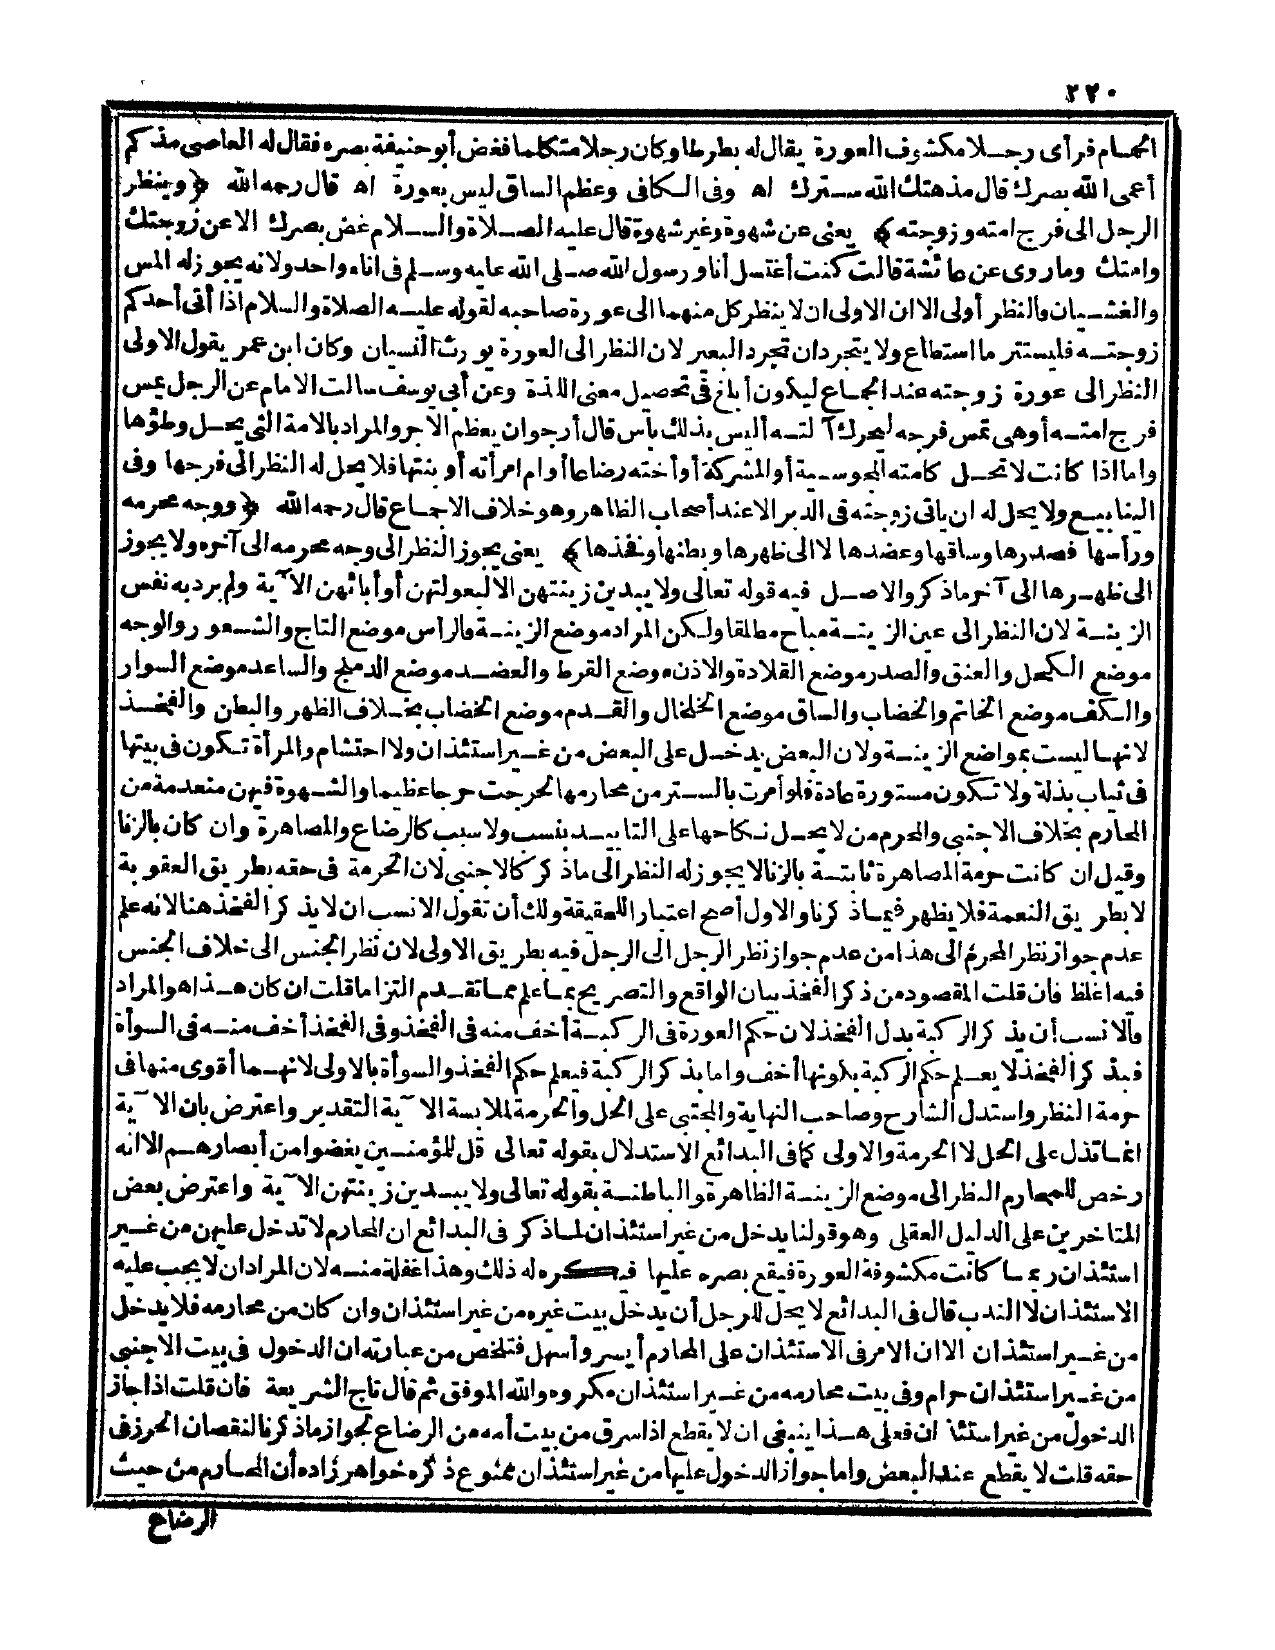 ٢٢٠
الحمام فرأى رجلا مكشوف العورة يقال له بطرطا وكان رجلا متكلما فغض أبو حنيفة بصره فقال له العاصي مذكم
أعمى الله بصرك قال مذ هتك الله سترك اه وفى الكافى وعظم الساق ليس بعورة اه قال رحمه الله ﴿وينظر
الرجل الى فرج امته وزوجته﴾ يعنى عن شهوة وغير شهوة قال عليه الصلاة والسلام غض بصرك الا عن زوجتك
وامتك وما روى عن عائشة قالت كنت أغتسل أنا ورسول الله صلى الله عليه وسلم فى اناء واحد ولانه يجوز له المس
والغشيان فالنظر أولى الا ان الاولى ان لا ينظر كل منهما الى عورة صاحبه لقوله عليه الصلاة والسلام اذا أتى أحدكم
زوجته فليستتر ما استطاع ولا يتجردان تجرد البعير لان النظر الى العورة يورث النسيان وكان ابن عمر يقول الاولى
النظر الى عورة زوجته عند الجماع ليكون أبلغ فى تحصيل معنى اللذة وعن أبى يوسف سالت الامام عن الرجل يمس
فرج امته أو هى تمس فرجه ليحرك آلته أليس بذلك بأس قال أرجو ان يعظم الاجر والمراد بالامة التى يحل وطؤها
واما اذا كانت لا تحل كامته المجوسية أو المشركة أو أخته رضاعا أو ام امرأته أو بنتها فلا يحل له النظر الى فرجها وفى
الينابيع ولا يحل له ان ياتى زوجته فى الدبر الا عند أصحاب الظاهر وهو خلاف الاجماع قال رحمه الله ﴿ووجه محرمه
ورأسها فصدرها وساقها وعضدها لا الى ظهرها وبطنها وفخذها﴾ يعنى يجوز النظر الى وجه محرمه الى آخره ولا يجوز
الى ظهرها الى آخر ما ذكر والاصل فيه قوله تعالى ولا يبدين زينتهن الا لبعولتهن أو أبائهن الآية ولم يرد به نفس
الزينة لان النظر الى عين الزينة مباح مطلقا ولكن المراد موضع الزينة فالرأس موضع التاج والشعور والوجه
موضع الكحل والعنق والصدر موضع القلادة والاذن موضع القرط والعضد موضع الدملج والساعد موضع السوار
والكف موضع الخاتم والخضاب والساق موضع الخلخال والقدم موضع الخضاب بخلاف الظهر والبطن والفخذ
لانها ليست بمواضع الزينة ولان البعض يدخل على البعض من غير استئذان ولا احتشام والمرأة تكون فى بيتها
فى ثياب بذلة ولا تكون مستورة عادة فلو أمرت بالستر من محارمها لحرجت حرجا عظيما والشهوة فيهن منعدمة من
المحارم بخلاف الاجنبى والمحرم من لا يحل نكاحها على التابيد بنسب ولا سبب كالرضاع والمصاهرة وان كان بالزنا
وقيل ان كانت حرمة المصاهرة ثابتة بالزنا لا يجوز له النظر الى ما ذكر كالاجنبى لان الحرمة فى حقه بطريق العقوبة
لا بطريق النعمة فلا يظهر فيما ذكرنا والاول أصح اعتبارا للحقيقة ولك أن تقول الانسب ان لا يذكر الفخذ هنا لانه علم
عدم جواز نظر المحرم الى هذا من عدم جواز نظر الرجل الى الرجل فيه بطريق الاولى لان نظر الجنس الى خلاف الجنس
فيه اغلظ فان قلت المقصود من ذكر الفخذ بيان الواقع والتصريح بما علم مما تقدم التزاما قلت ان كان هذا هو المراد
فالانسب أن يذكر الركبة بدل الفخذ لان حكم العورة فى الركبة أخف منه فى الفخذ وفى الفخذ أخف منه فى السوأة
فبذكر الفخذ لا يعلم حكم الركبة بكونها أخف واما بذكر الركبة فيعلم حكم الفخذ والسوأة بالاولى لانهما أقوى منها فى
حرمة النظر واستدل الشارح وصاحب النهاية والمجتبى على الحل والحرمة لملابسة الآية التقدير واعترض بان الآية
انما تدل على الحل لا الحرمة والاولى كما فى البدائع الاستدلال بقوله تعالى قل للمؤمنين يغضوا من أبصارهم الا انه
رخص للمحارم النظر الى موضع الزينة الظاهرة والباطنة بقوله تعالى ولا يبدين زينتهن الآية واعترض بعض
المتاخرين على الدليل العقلى وهو قولنا يدخل من غير استئذان لما ذكر فى البدائع ان المحارم لا تدخل عليهن من غير
استئذان ربما كانت مكشوفة العورة فيقع بصره عليها فيكره له ذلك وهذا غفلة منه لان المراد ان لا يجب عليه
الاستئذان لا الندب قال فى البدائع لا يحل للرجل أن يدخل بيت غيره من غير استئذان وان كان من محارمه فلا يدخل
من غير استئذان الا ان الامر فى الاستئذان على المحارم أيسر وأسهل فتلخص من عبارته ان الدخول فى بيت الاجنبى
من غير استئذان حرام وفى بيت محارمه من غير استئذان مكروه والله الموفق ثم قال تاج الشريعة فان قلت اذا جاز
الدخول من غير استئذان فعلى هذا ينبغى ان لا يقطع اذا سرق من بيت أمه من الرضاع لجواز ما ذكرنا لنقصان الحرز فى
حقه قلت لا يقطع عند البعض واما جواز الدخول عليها من غير استئذان ممنوع ذكره خواهر زاده أن المحارم من حيث
الرضاع